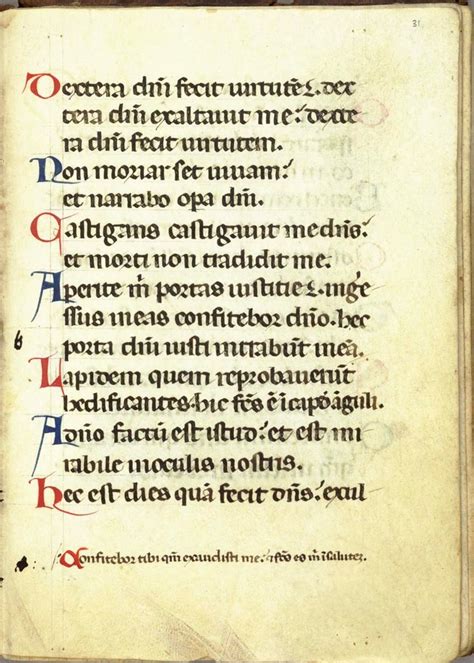 31
Dextera dñi fecit uirtutẽ. dex
tera dñi exaltauit me: dexte
ra dñi fecit uirtutem.
Non moriar set uiuam:
et narrabo opa dñi.
Castigans castigauit me dñs:
et morti non tradidit me.
Aperite m̃ portas iustitie. inge
ssus in eas confitebor dño: hec
porta dñi iusti intrabũt in eã.
b
Lapidem quem reprobauerũt
hedificantes: hic fc̃s ẽ ĩ capđ ãguli.
A dño factũ est istud: et est mi
rabile in oculis nostris.
Hec est dies quã fecit dñs: exul
Confitebor tibi qm̃ exaudisti me: fc̃s es m̃ ĩ salutez.